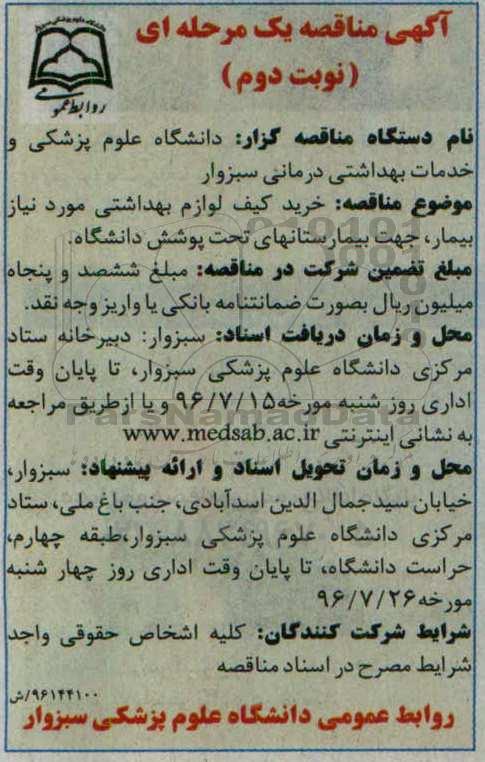 آگهی مناقصه یک مرحله ای
(نوبت دوم)
روابط عمومی
نام دستگاه مناقصه گزار: دانشگاه علوم پزشکی و
خدمات بهداشتی درمانی سبزوار
موضوع مناقصه: خرید کیف لوازم بهداشتی مورد نیاز
بیمار، جهت بیمارستانهای تحت پوشش دانشگاه.
مبلغ تضمین شرکت در مناقصه: مبلغ ششصد و پنجاه
میلیون ریال بصورت ضمانتنامه بانکی یا واریز وجه نقد.
محل و زمان دریافت اسناد: سبزوار: دبیرخانه ستاد
مرکزی دانشگاه علوم پزشکی سبزوار، تا پایان وقت
اداری روز شنبه مورخه ۹۶/۷/۱۵ و یا از طریق مراجعه
به نشانی اینترنتی www.medsab.ac.ir
محل و زمان تحویل اسناد و ارائه پیشنهاد: سبزوار،
خیابان سیدجمال الدین اسدآبادی، جنب باغ ملی، ستاد
مرکزی دانشگاه علوم پزشکی سبزوار، طبقه چهارم،
حراست دانشگاه، تا پایان وقت اداری روز چهار شنبه
مورخه ۹۶/۷/۲۶
شرایط شرکت کنندگان: کلیه اشخاص حقوقی واجد
شرایط مصرح در اسناد مناقصه
۹۶۱۴۴۱۰۰/ش
روابط عمومی دانشگاه علوم پزشکی سبزوار
ParsNamadData